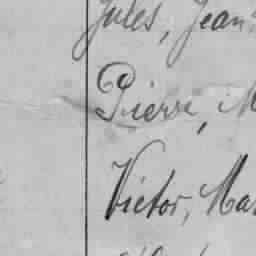 Jules, Jean
Pierre, M
Victor, Ma